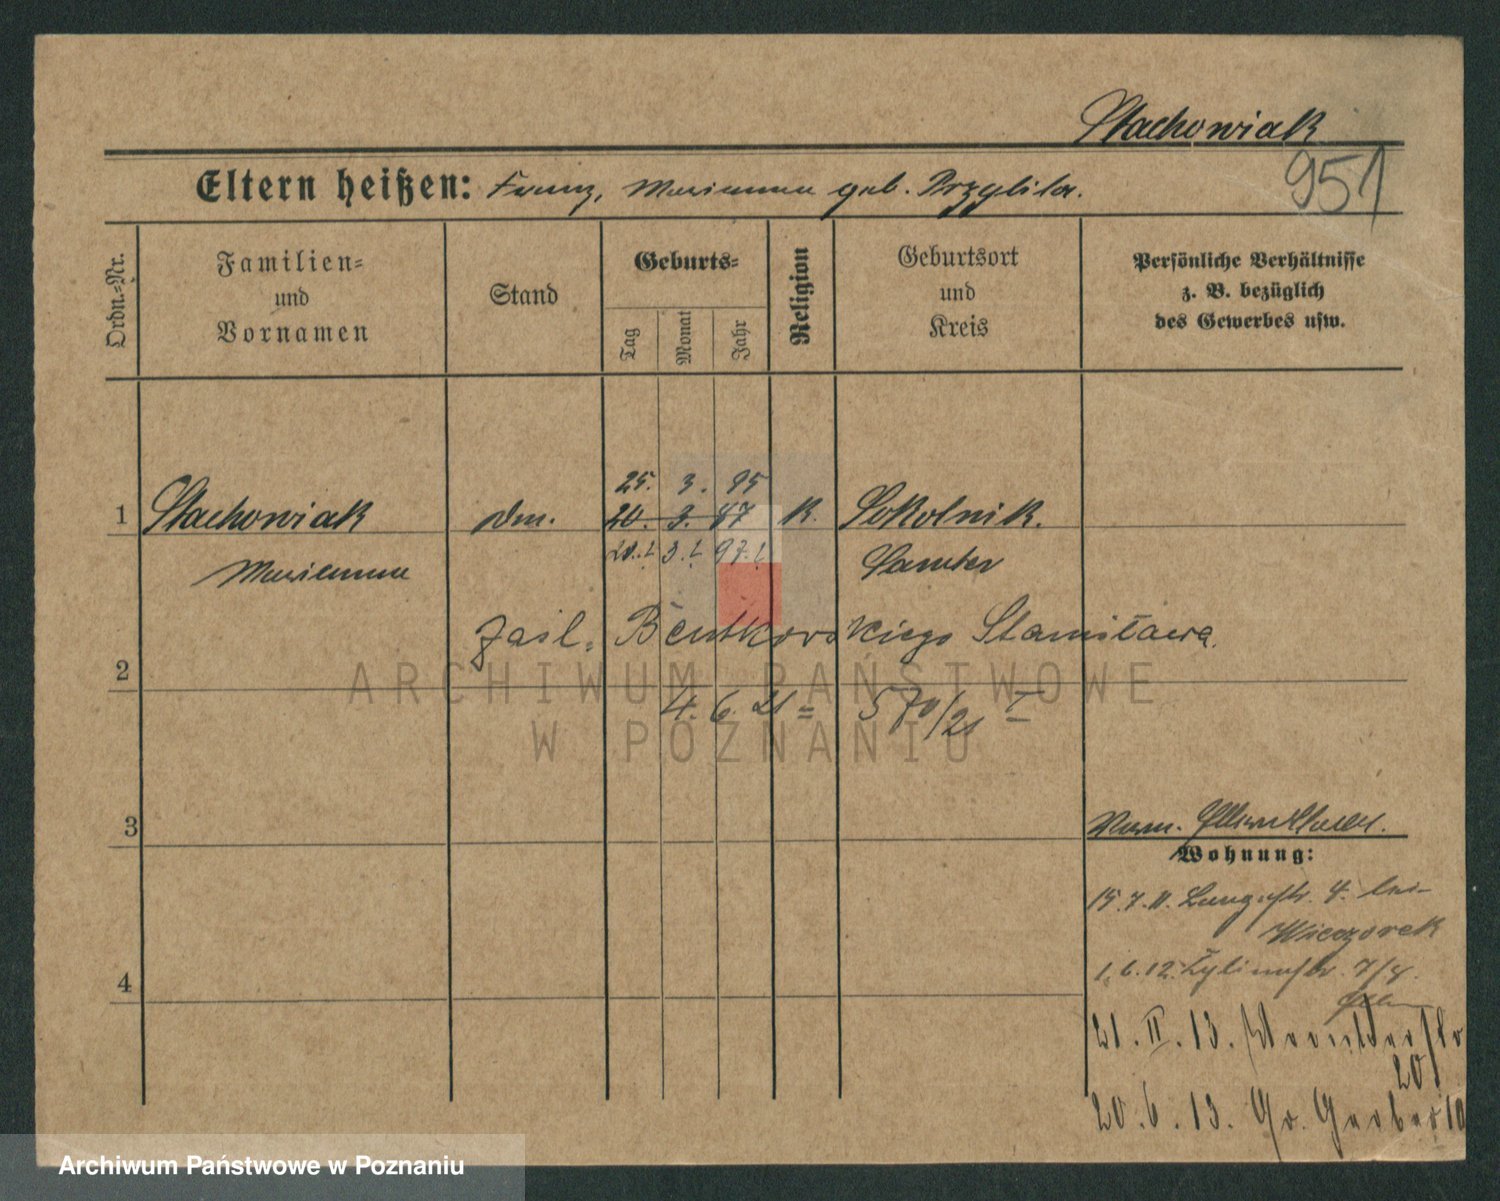 Stachowiak
951
Eltern heißen: Franz, Marianna geb. Przybila.
Ordn.=Nr.
Familien=
und
Vornamen
Stand
Geburts=
Tag
Monat
Jahr
Religion
Geburtsort
und
Kreis
Persönliche Verhältnisse
z. B. bezüglich
des Gewerbes usw.
25. 3. 95
1 Stachowiak 20. 3. 87 k. Sokolnik.
20.? 3.? 97.?
Marianna Samter
zaśl. Bentkowskiego Stanisława.
2
4. 6. 21 = 570/21 I
3
Wohnung:
15.7.11. Langestr. 4. bei
Wieczorek
4
1.6.12. 7/8.
21. II. 13.
20
20. 6. 13. Gr. Gerber 10
ARCHIWUM PAŃSTWOWE
W POZNANIU
Archiwum Państwowe w Poznaniu